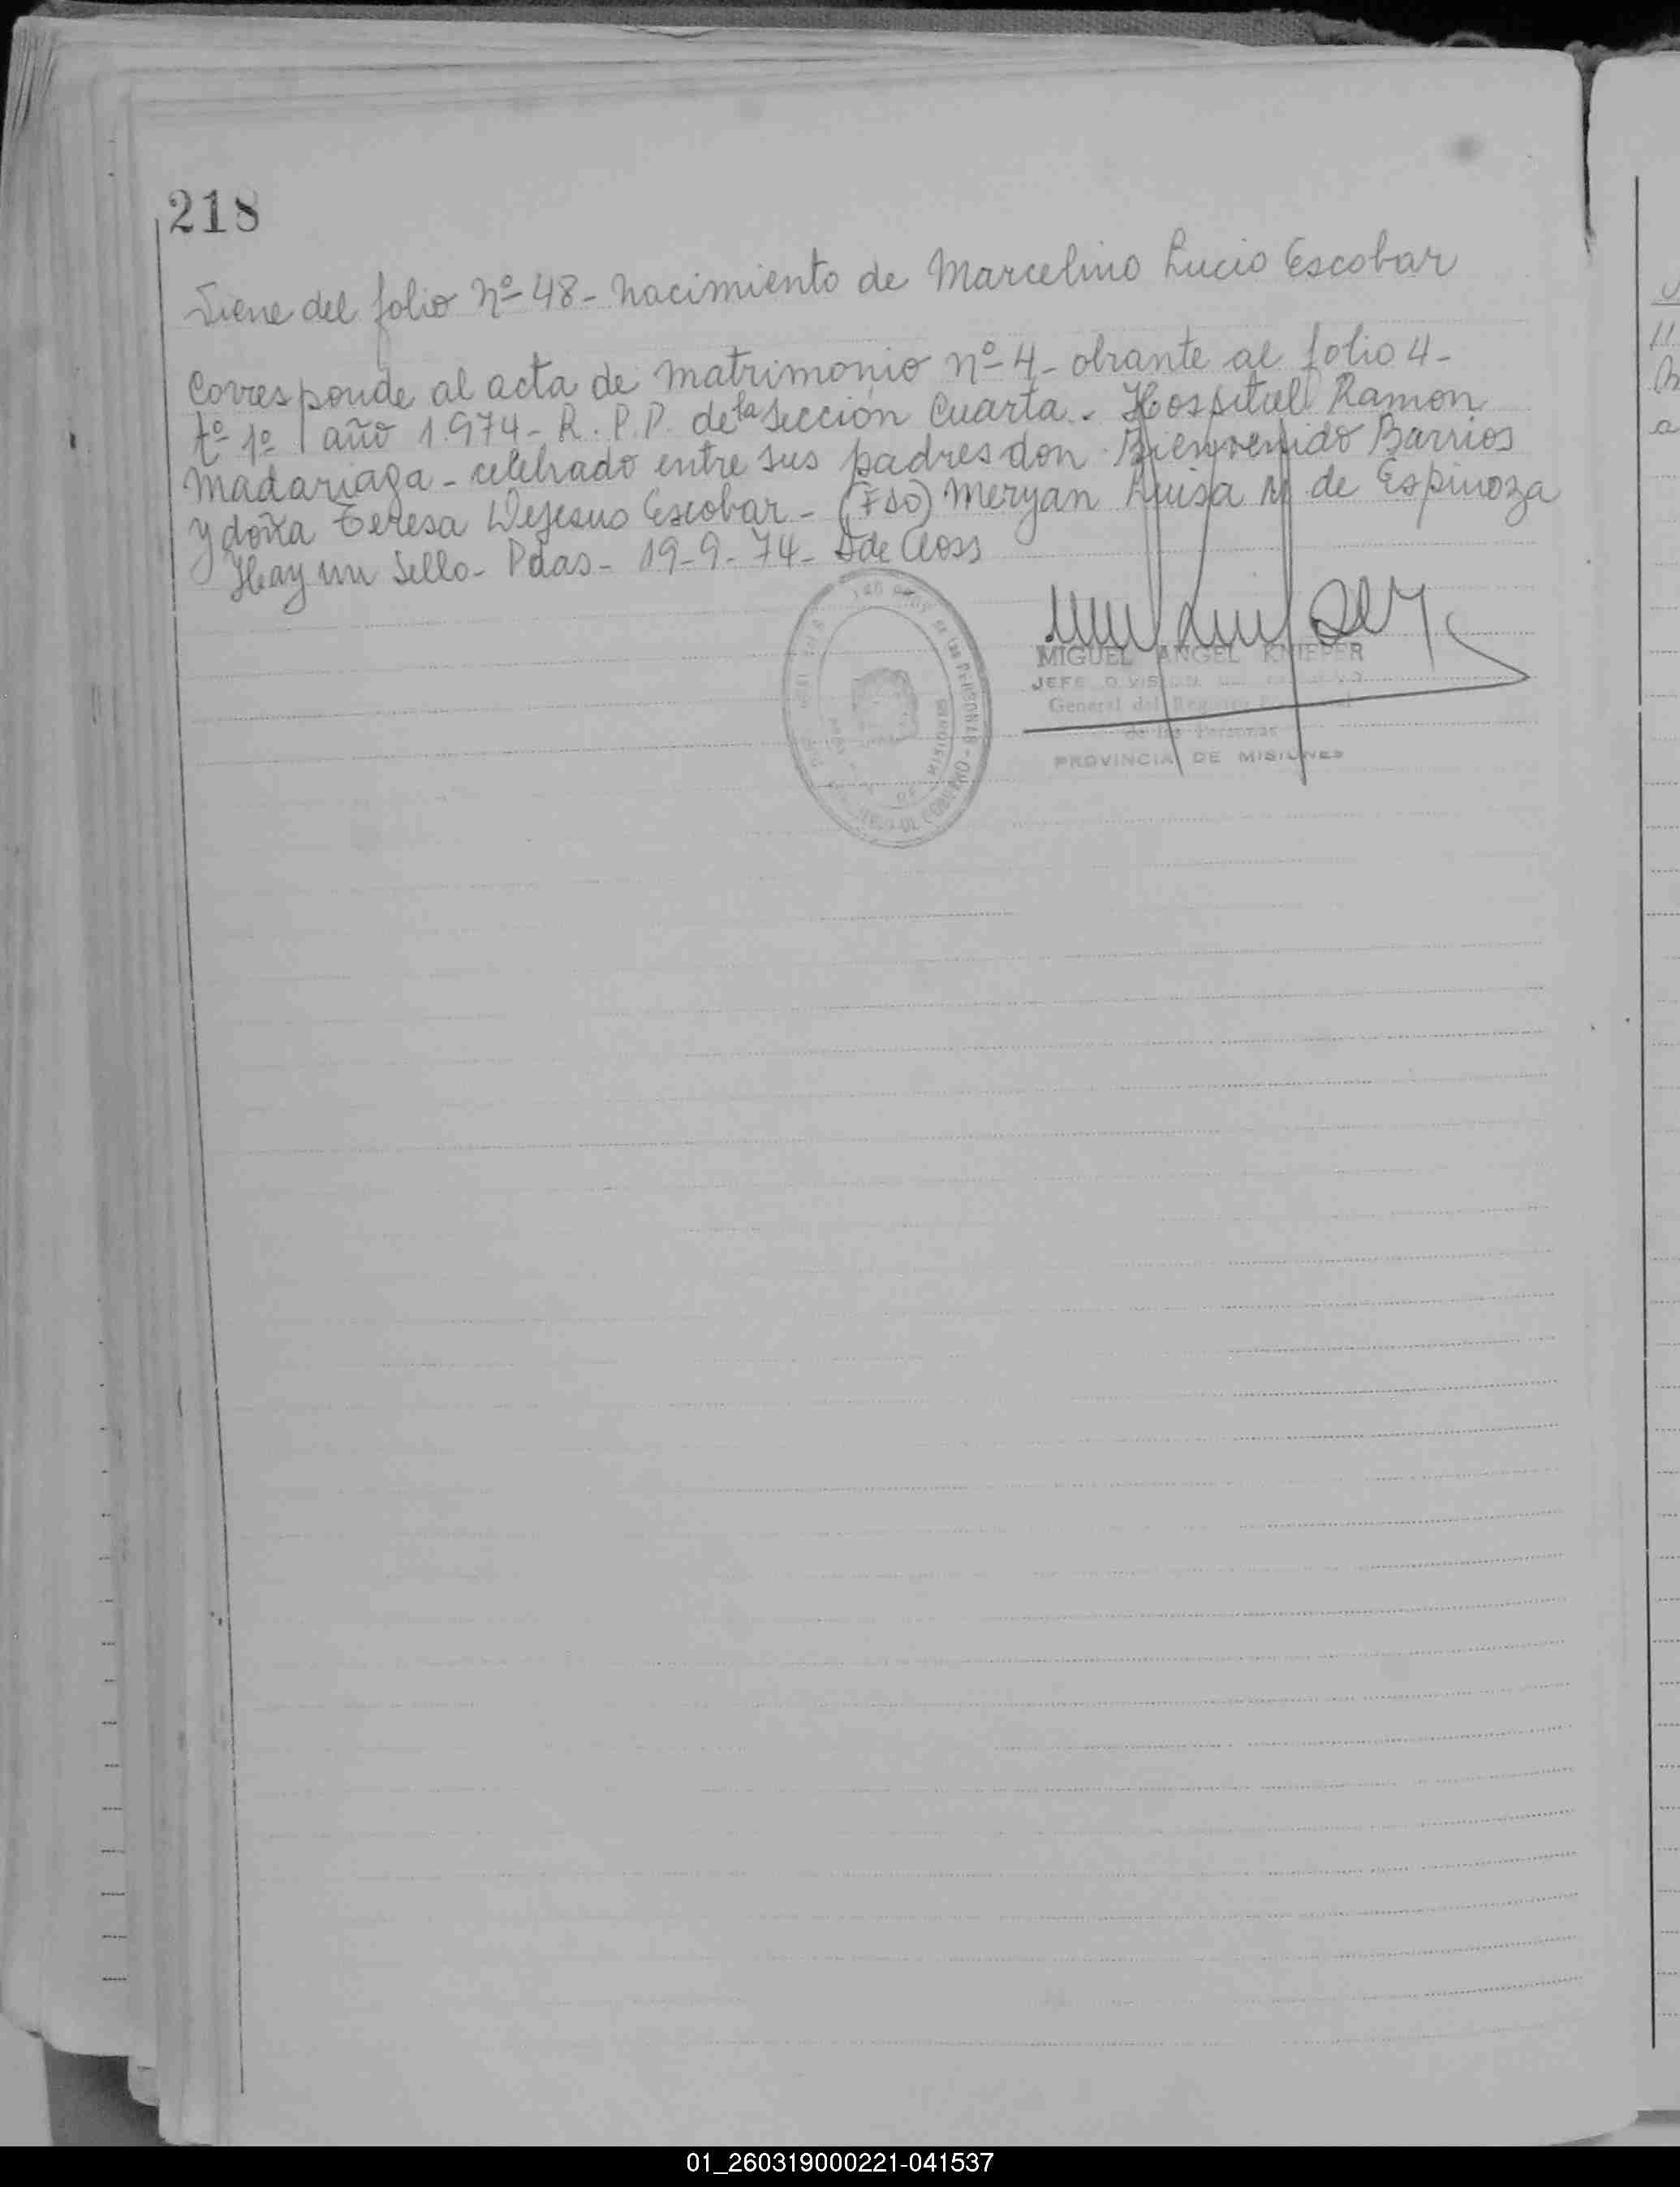 218
Viene del folio Nº 48 - Nacimiento de Marcelino Lucio Escobar
Corresponde al acta de matrimonio nº 4 - obrante al folio 4 -
tº 1º año 1.974 - R. P. P. de la Sección Cuarta. Hospital Ramon
Madariaga - celebrado entre sus padres don Bienvenido Barrios
y doña Teresa Dejesus Escobar - (Fdo) Meryan Luisa M de Espinoza
Hay un Sello - Pdas - 19-9-74 - de Closs
MIGUEL ANGEL KNIEPER
JEFE DIVISION
General del Registro
de las Personas
PROVINCIA DE MISIONES
DE LAS PERSONAS
MISIONES
01_260319000221-041537